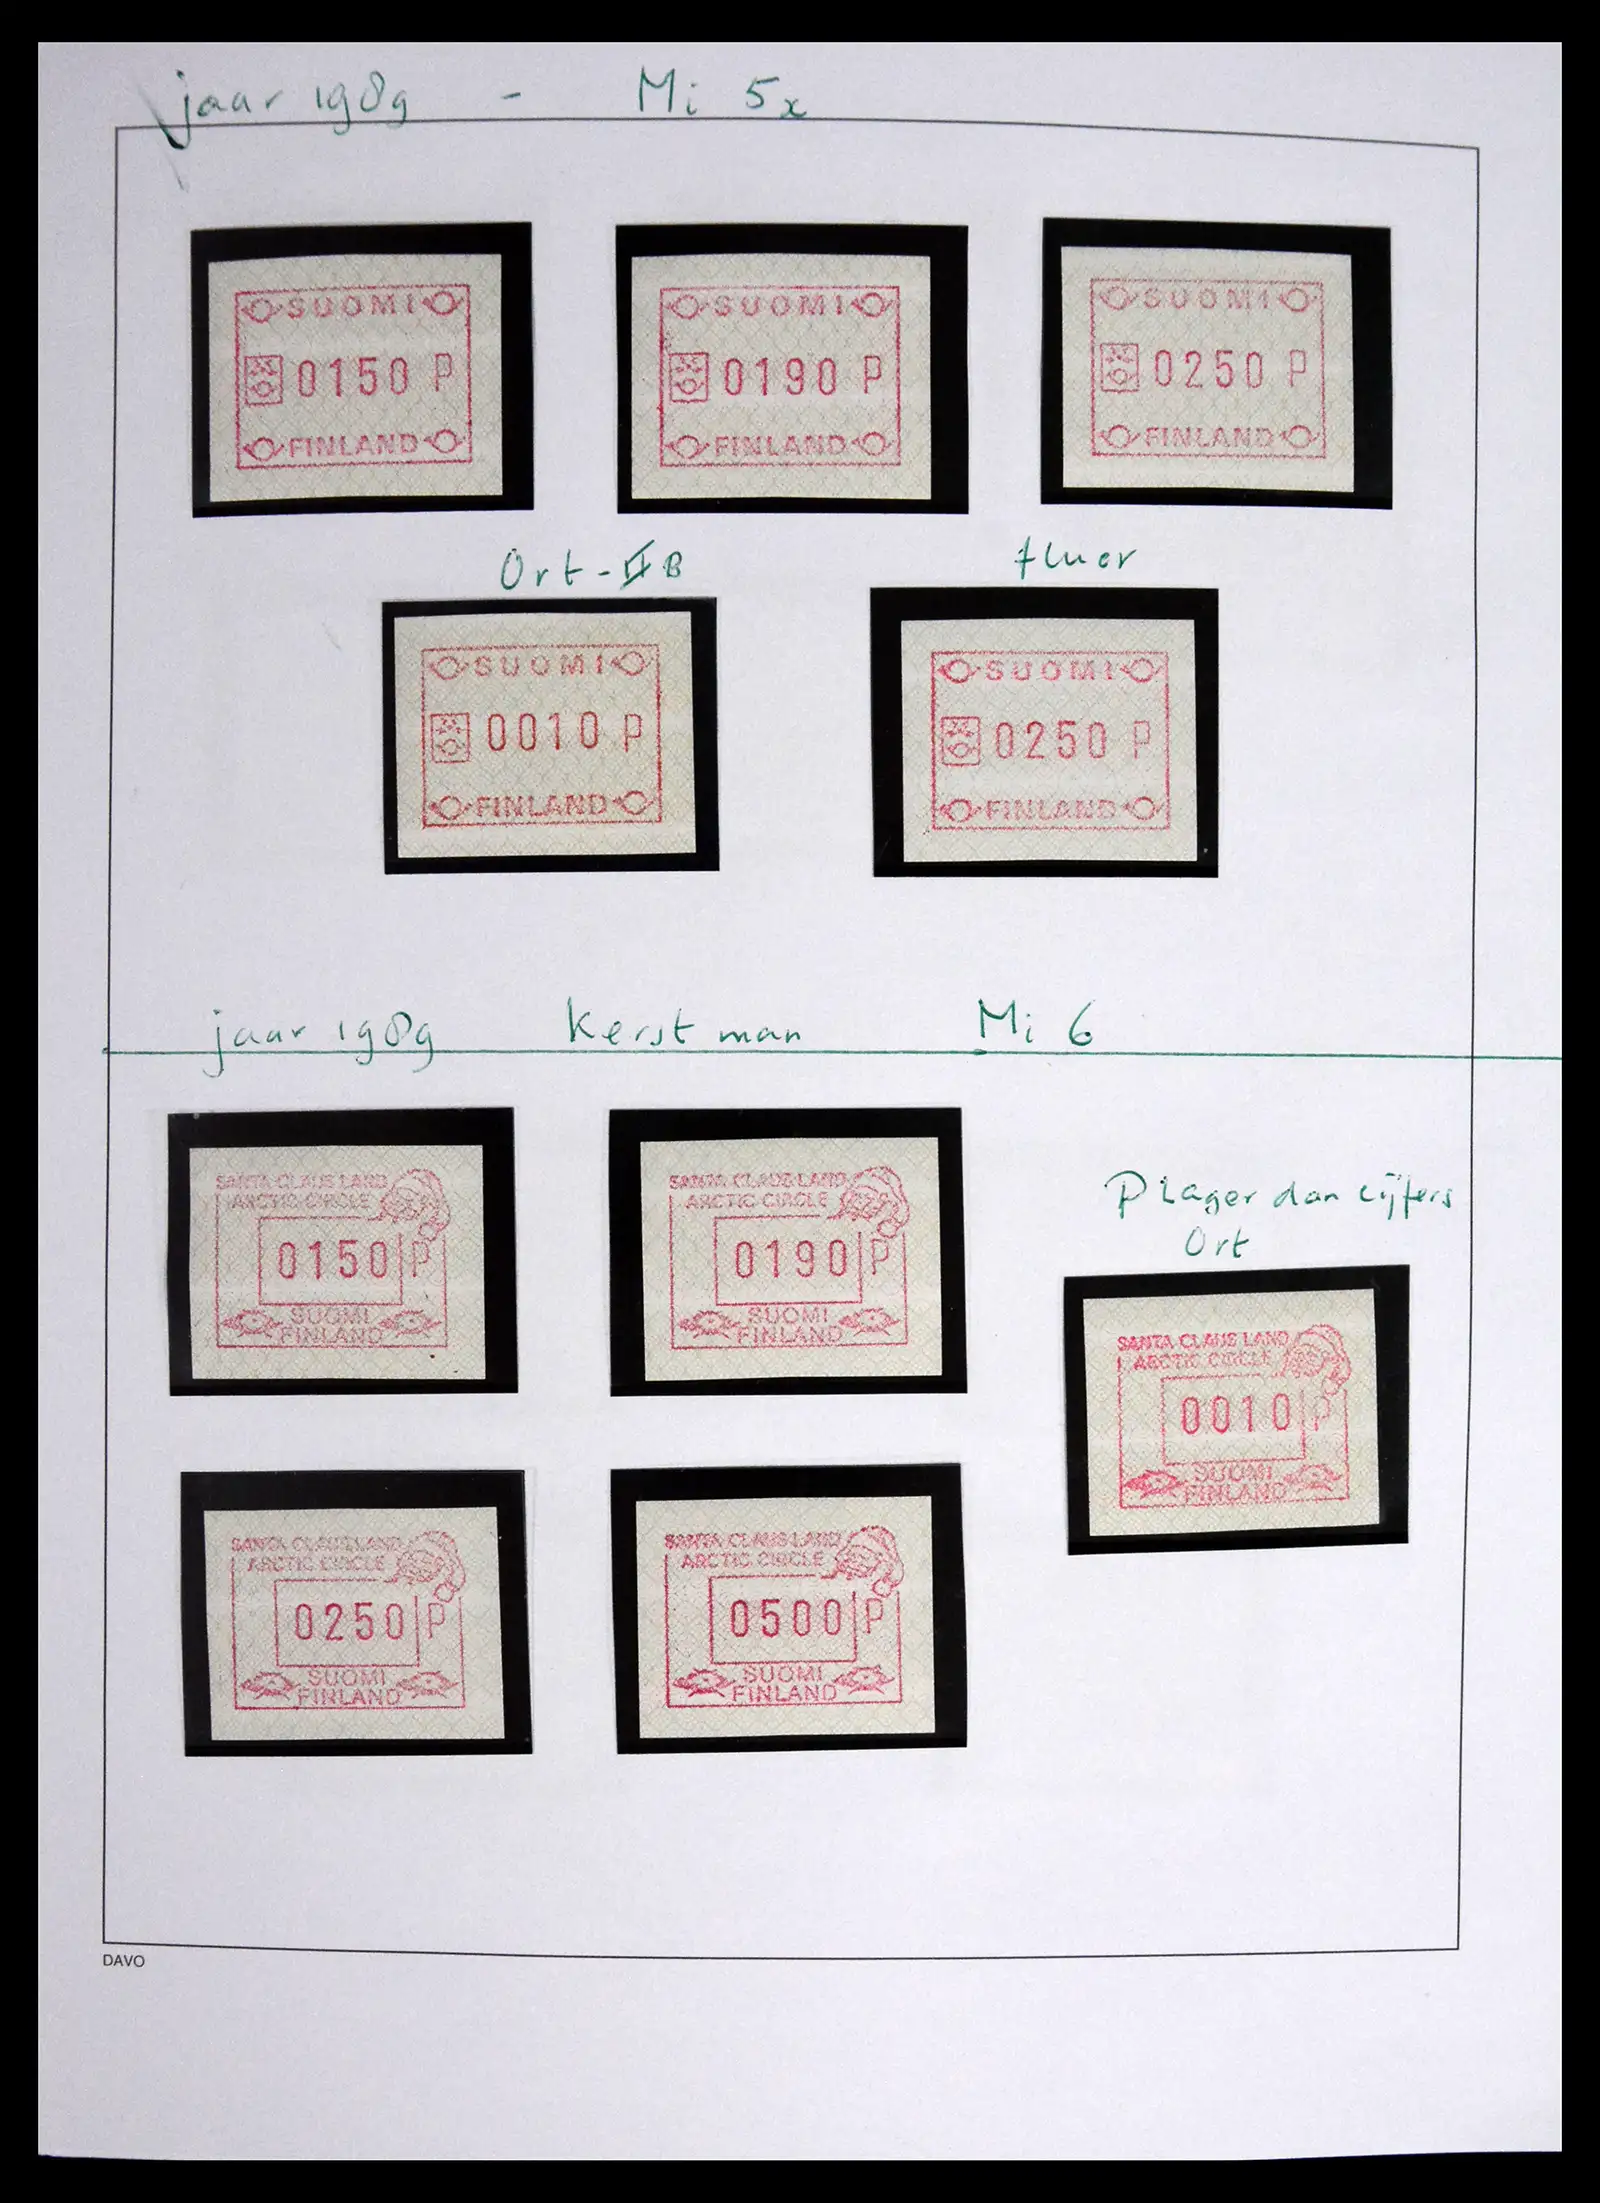 jaar 1989 - Mi 5x
SUOMI
0150 P
FINLAND
SUOMI
0190 P
FINLAND
SUOMI
0250 P
FINLAND
Ort - B
fluor
SUOMI
0010 P
FINLAND
SUOMI
0250 P
FINLAND
jaar 1989 Kerstman Mi 6
SANTA CLAUS LAND
ARCTIC CIRCLE
0150 P
SUOMI
FINLAND
SANTA CLAUS LAND
ARCTIC CIRCLE
0190 P
SUOMI
FINLAND
P Lager dan cijfers
Ort
SANTA CLAUS LAND
ARCTIC CIRCLE
0010 P
SUOMI
FINLAND
SANTA CLAUS LAND
ARCTIC CIRCLE
0250 P
SUOMI
FINLAND
SANTA CLAUS LAND
ARCTIC CIRCLE
0500 P
SUOMI
FINLAND
DAVO